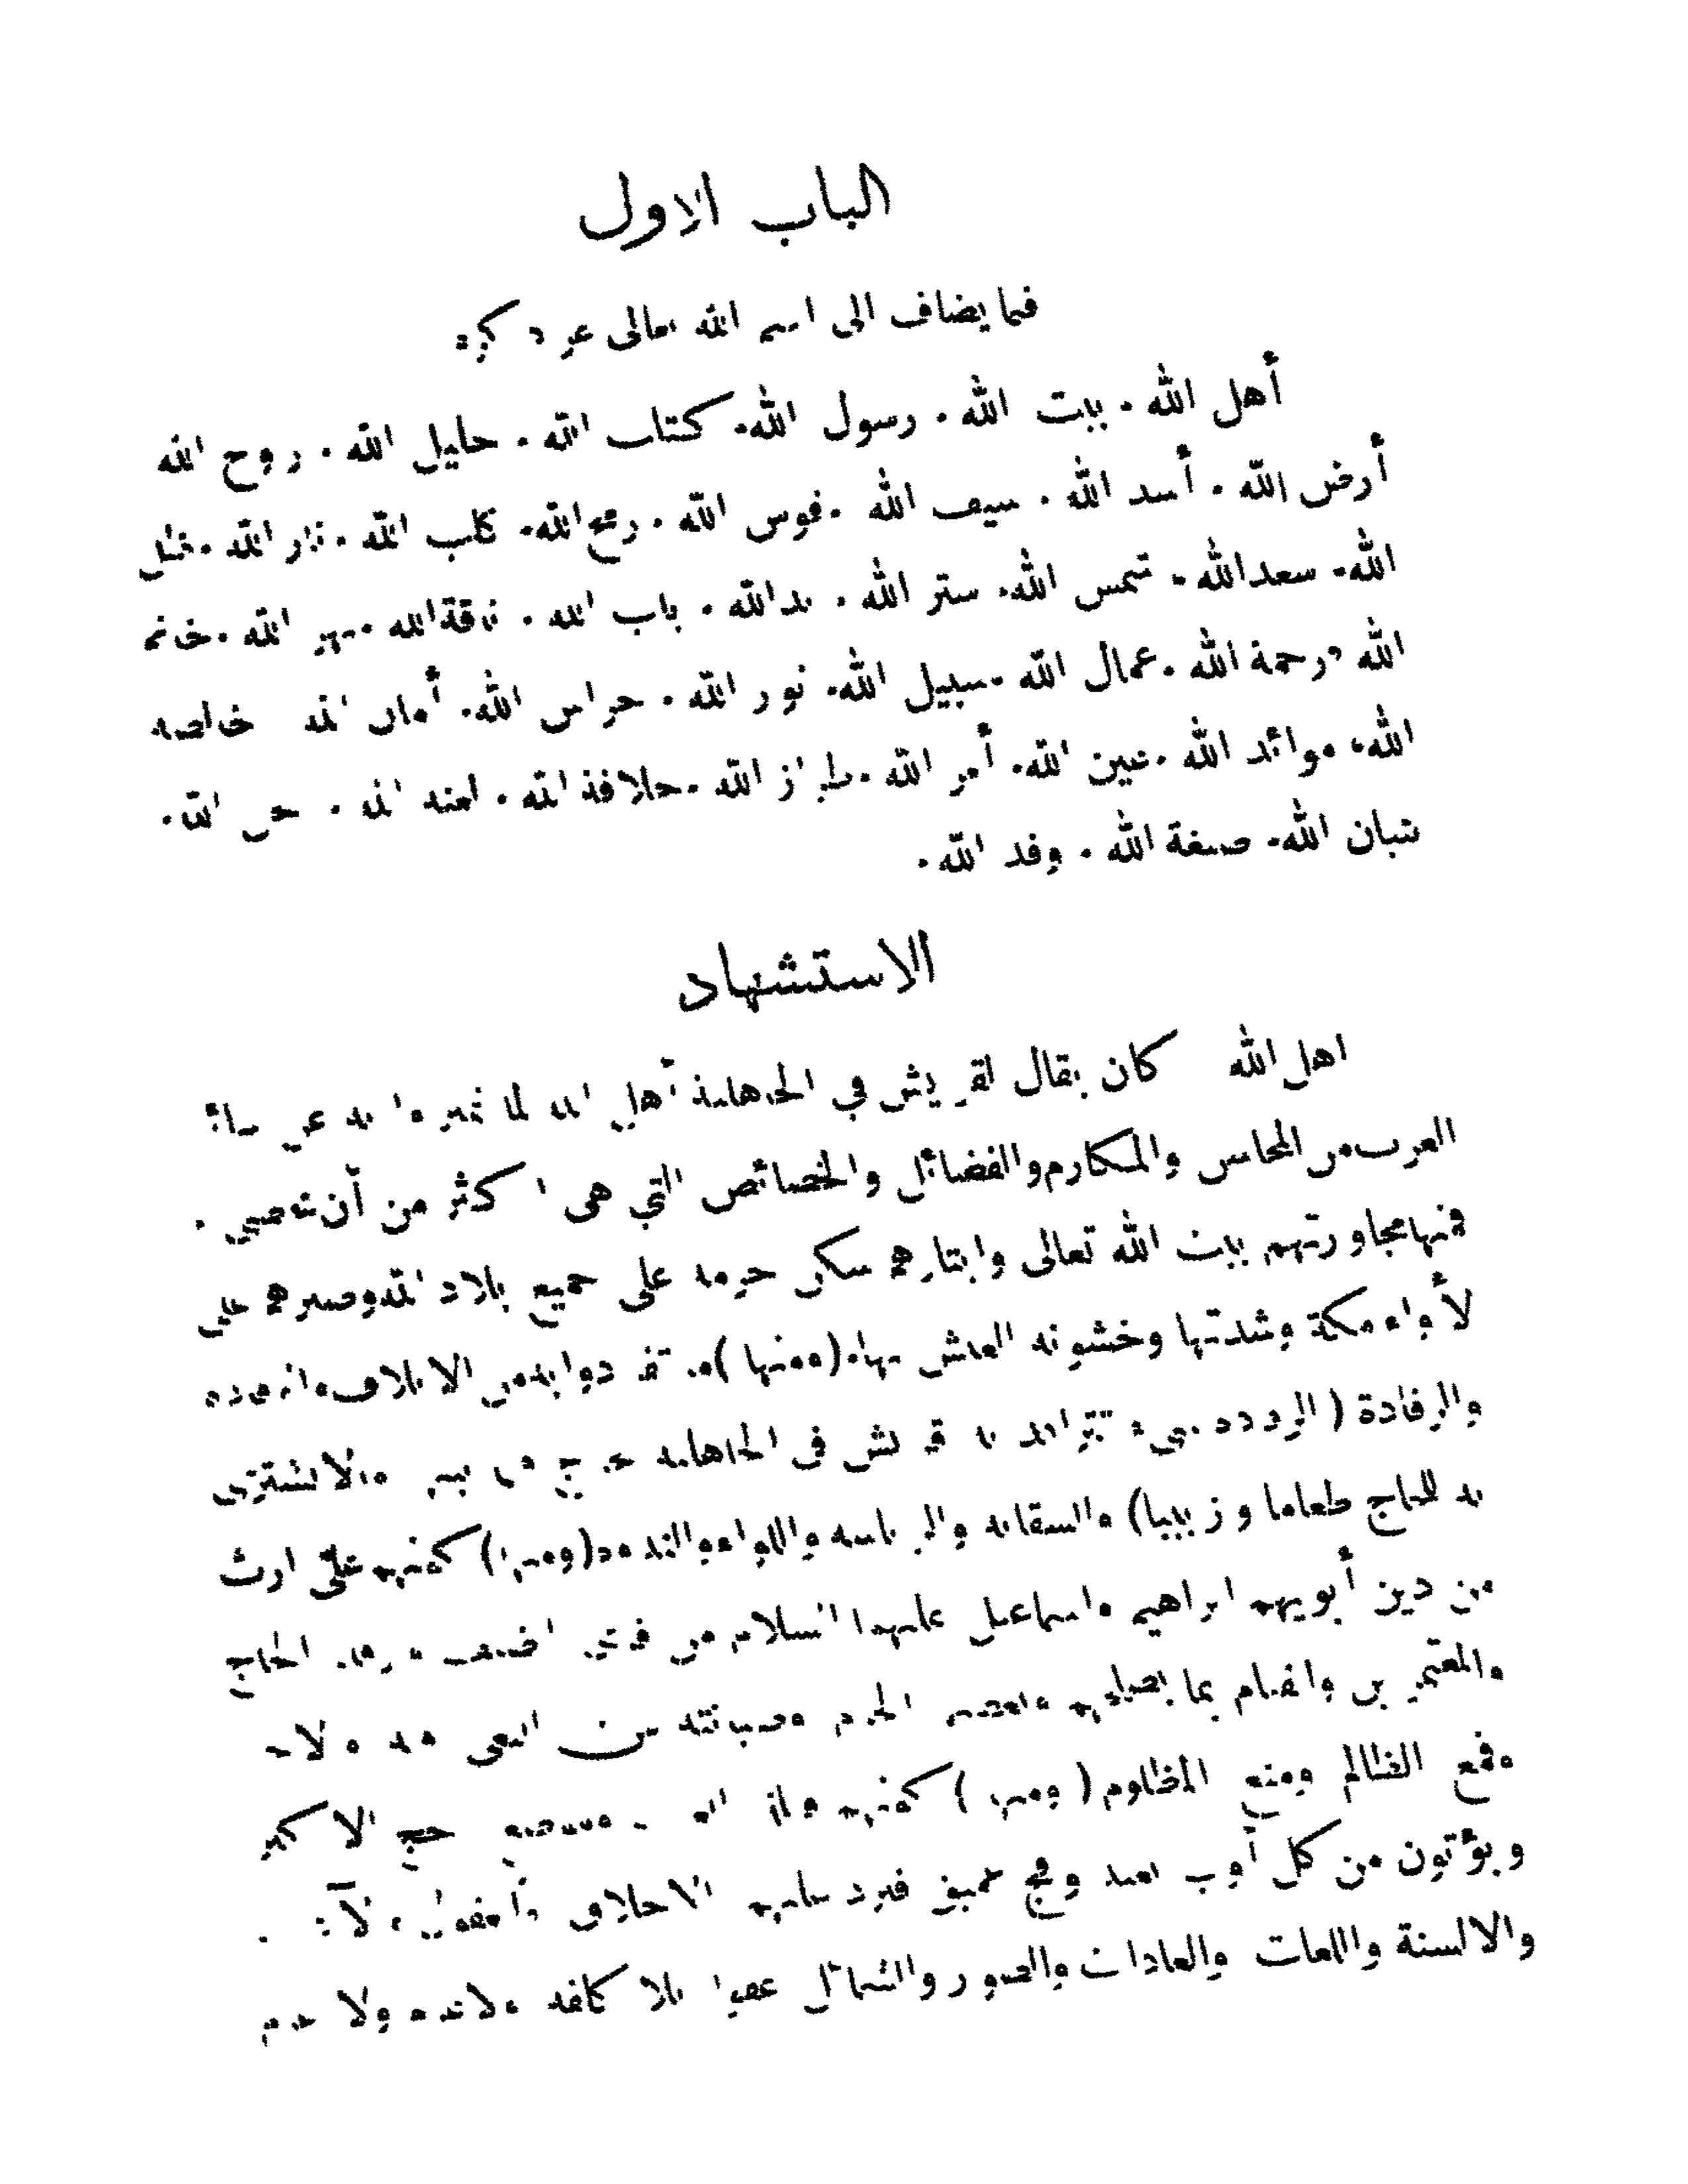 الباب الاول
فيما يضاف الى اسم الله تعالى عز ذكره
أهل الله . بيت الله . رسول الله . كتاب الله . خليل الله . روح الله
أرض الله . أسد الله . سيف الله . قوس الله . رمح الله . كلب الله . نار الله . خيل
الله . سعد الله . شمس الله . ستر الله . يد الله . باب الله . ناقة الله . نهر الله . خاتم
الله . رحمة الله . عمال الله . سبيل الله . نور الله . حراس الله . أمان الله خالصة
الله . موائد الله . عين الله . أمر الله . طراز الله . خلافة الله . لعنة الله . الله .
بنيان الله . صبغة الله . وفد الله .
الاستشهاد
اهل الله كان يقال لقريش في الجاهلية أهل الله لما تميزوا به عن سائر
العرب من المحاسن والمكارم والفضائل والخصائص التي هي اكثر من أن تحصى .
فمنها مجاورتهم بيت الله تعالى وايثارهم سكنى حرمه على جميع بلاد الله وصبرهم على
لأواء مكة وشدتها وخشونة العيش بها . (ومنها) ما تفردوا به من الايلاف والوفادة
والرفادة ( شيء تترافد به قريش في الجاهلية تشترى
به للحاج طعاما وزبيبا) والسقاية والرياسة واللواء والندوة (ومنها) كونهم على ارث
من دين أبويهم ابراهيم واسماعيل عليهما السلام من قرى الضيف ورفد الحاج
والمعتمرين والقيام بما يصلحهم وتعظيم الحرم وصيانته من البغى فيه
وقمع الظالم ومنع المظلوم (ومنها) كونهم حج الاكبر
ويؤتون من كل أوب بعيد وفج عميق فترد عليهم الاخلاق والعقول
والالسنة واللغات والعادات والصور والشمائل عفوا بلا كلفة ولا